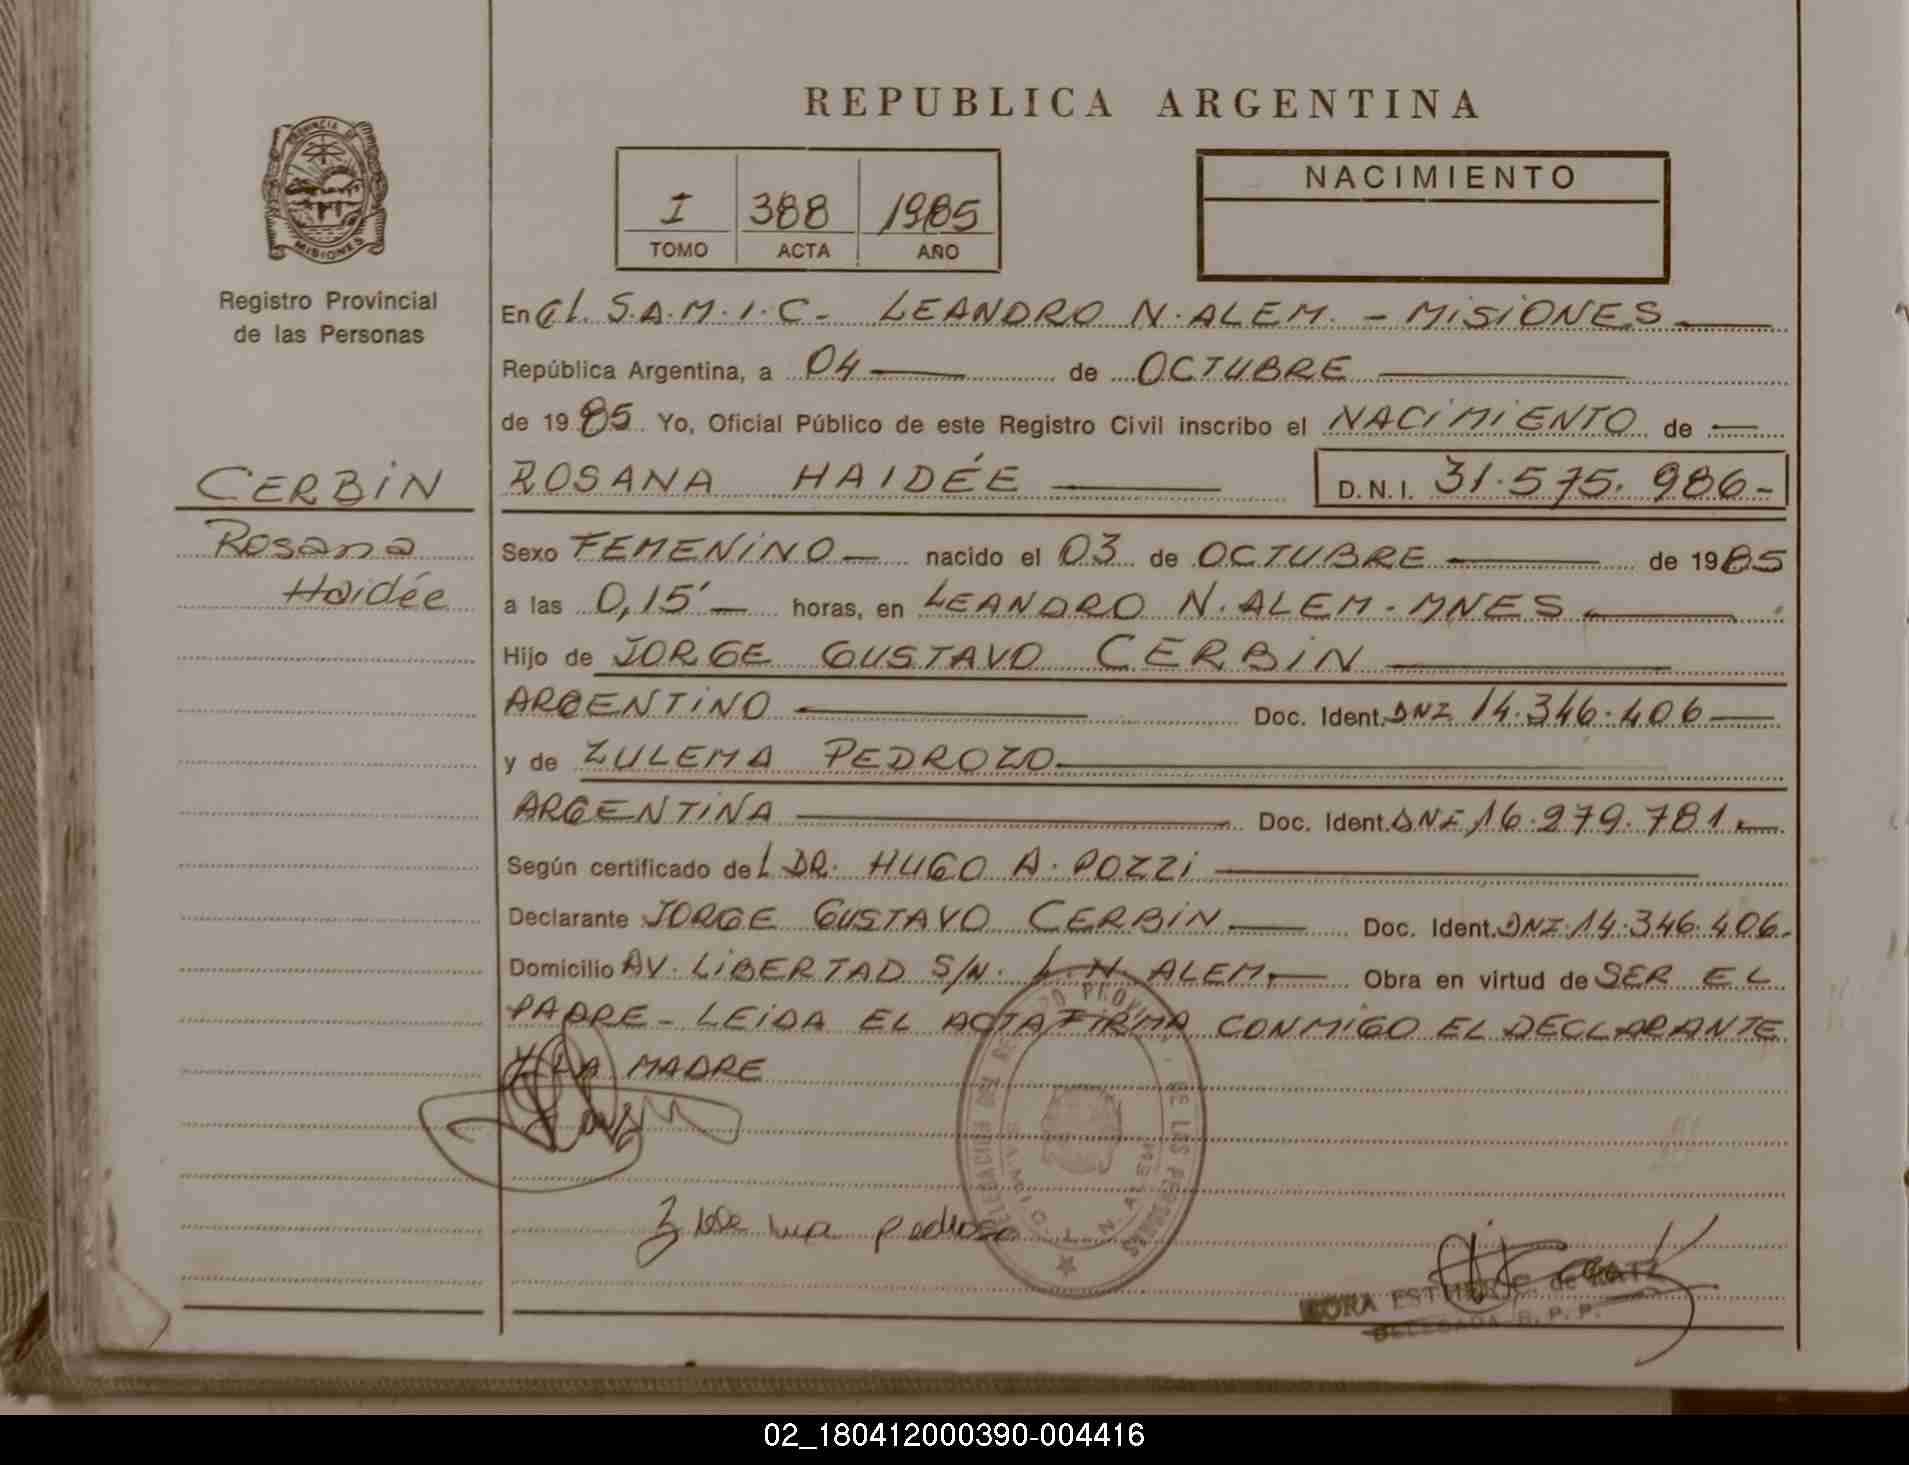 REPUBLICA ARGENTINA
PROVINCIA DE
MISIONES
Registro Provincial
de las Personas
I 388 1985
TOMO ACTA AÑO
NACIMIENTO
En el S.A.M.I.C- LEANDRO N. ALEM. - MISIONES
República Argentina, a 04 de OCTUBRE
de 1985 Yo, Oficial Público de este Registro Civil inscribo el NACIMIENTO de
CERBIN
ROSANA HAIDÉE D.N.I. 31.575.986-
Rosana
Haidée
Sexo FEMENINO nacido el 03 de OCTUBRE de 1985
a las 0,15' horas, en LEANDRO N. ALEM - MNES
Hijo de JORGE GUSTAVO CERBIN
ARGENTINO Doc. Ident. DNI 14.346.406
y de ZULEMA PEDROZO
ARGENTINA Doc. Ident. DNI 16.279.781
Según certificado del DR. HUGO A. POZZI
Declarante JORGE GUSTAVO CERBIN Doc. Ident. DNI 14.346.406.
Domicilio AV. LIBERTAD S/N. L.N. ALEM. Obra en virtud de SER EL
PADRE - LEIDA EL ACTA FIRMA CONMIGO EL DECLARANTE
Y LA MADRE
DELEGACION DEL REGISTRO PROV. DE LAS PERSONAS
S.A.M.I.C. L. N. ALEM
Zulema pedroso
ESTHER C. de
DELEGADA R. P. P.
02_180412000390-004416